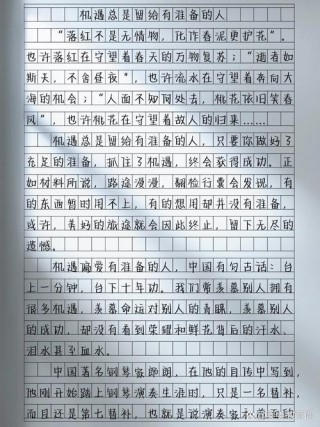 机遇总是留给有准备的人
“落红不是无情物，化作春泥更护花”。
也许落红在守望着春天的万物复苏；“逝者如
斯夫，不舍昼夜”，也许流水在守望着奔向大
海的机会；“人面不知何处去，桃花依旧笑春
风”，也许桃花在守望着故人的归来……
机遇总是留给有准备的人，只要你做好了
充足的准备，抓住了机遇，终会获得成功。正
如材料所说，路途漫漫，翻检行囊会发现，有
的东西暂时用不上，有的想用却并没有准备，
或许，美好的旅途就会因此终止，留下无尽的
遗憾。
机遇偏爱有准备的人，中国有句古话：台
上一分钟，台下十年功。我们常羡慕别人拥有
很多机遇，羡慕命运对别人的青睐，羡慕别人
的成功，却没有看到荣耀和鲜花背后的汗水、
泪水甚至血水。
中国著名钢琴家郎朗，在他的自传中写到，
他刚开始踏上钢琴演奏生涯时，只是一名替补，
而且还是第七替补，也就是说演奏家前面的